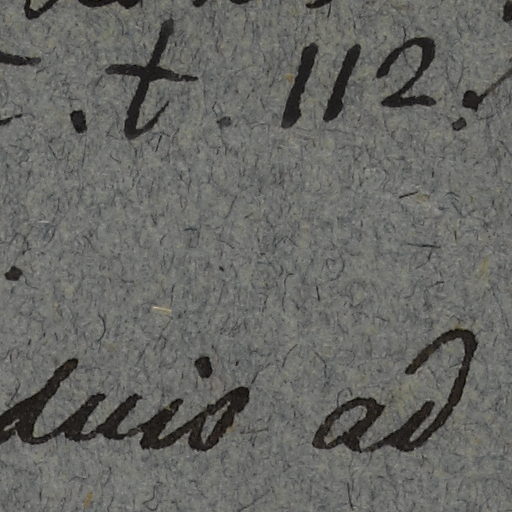 . t. 112.
duis ad